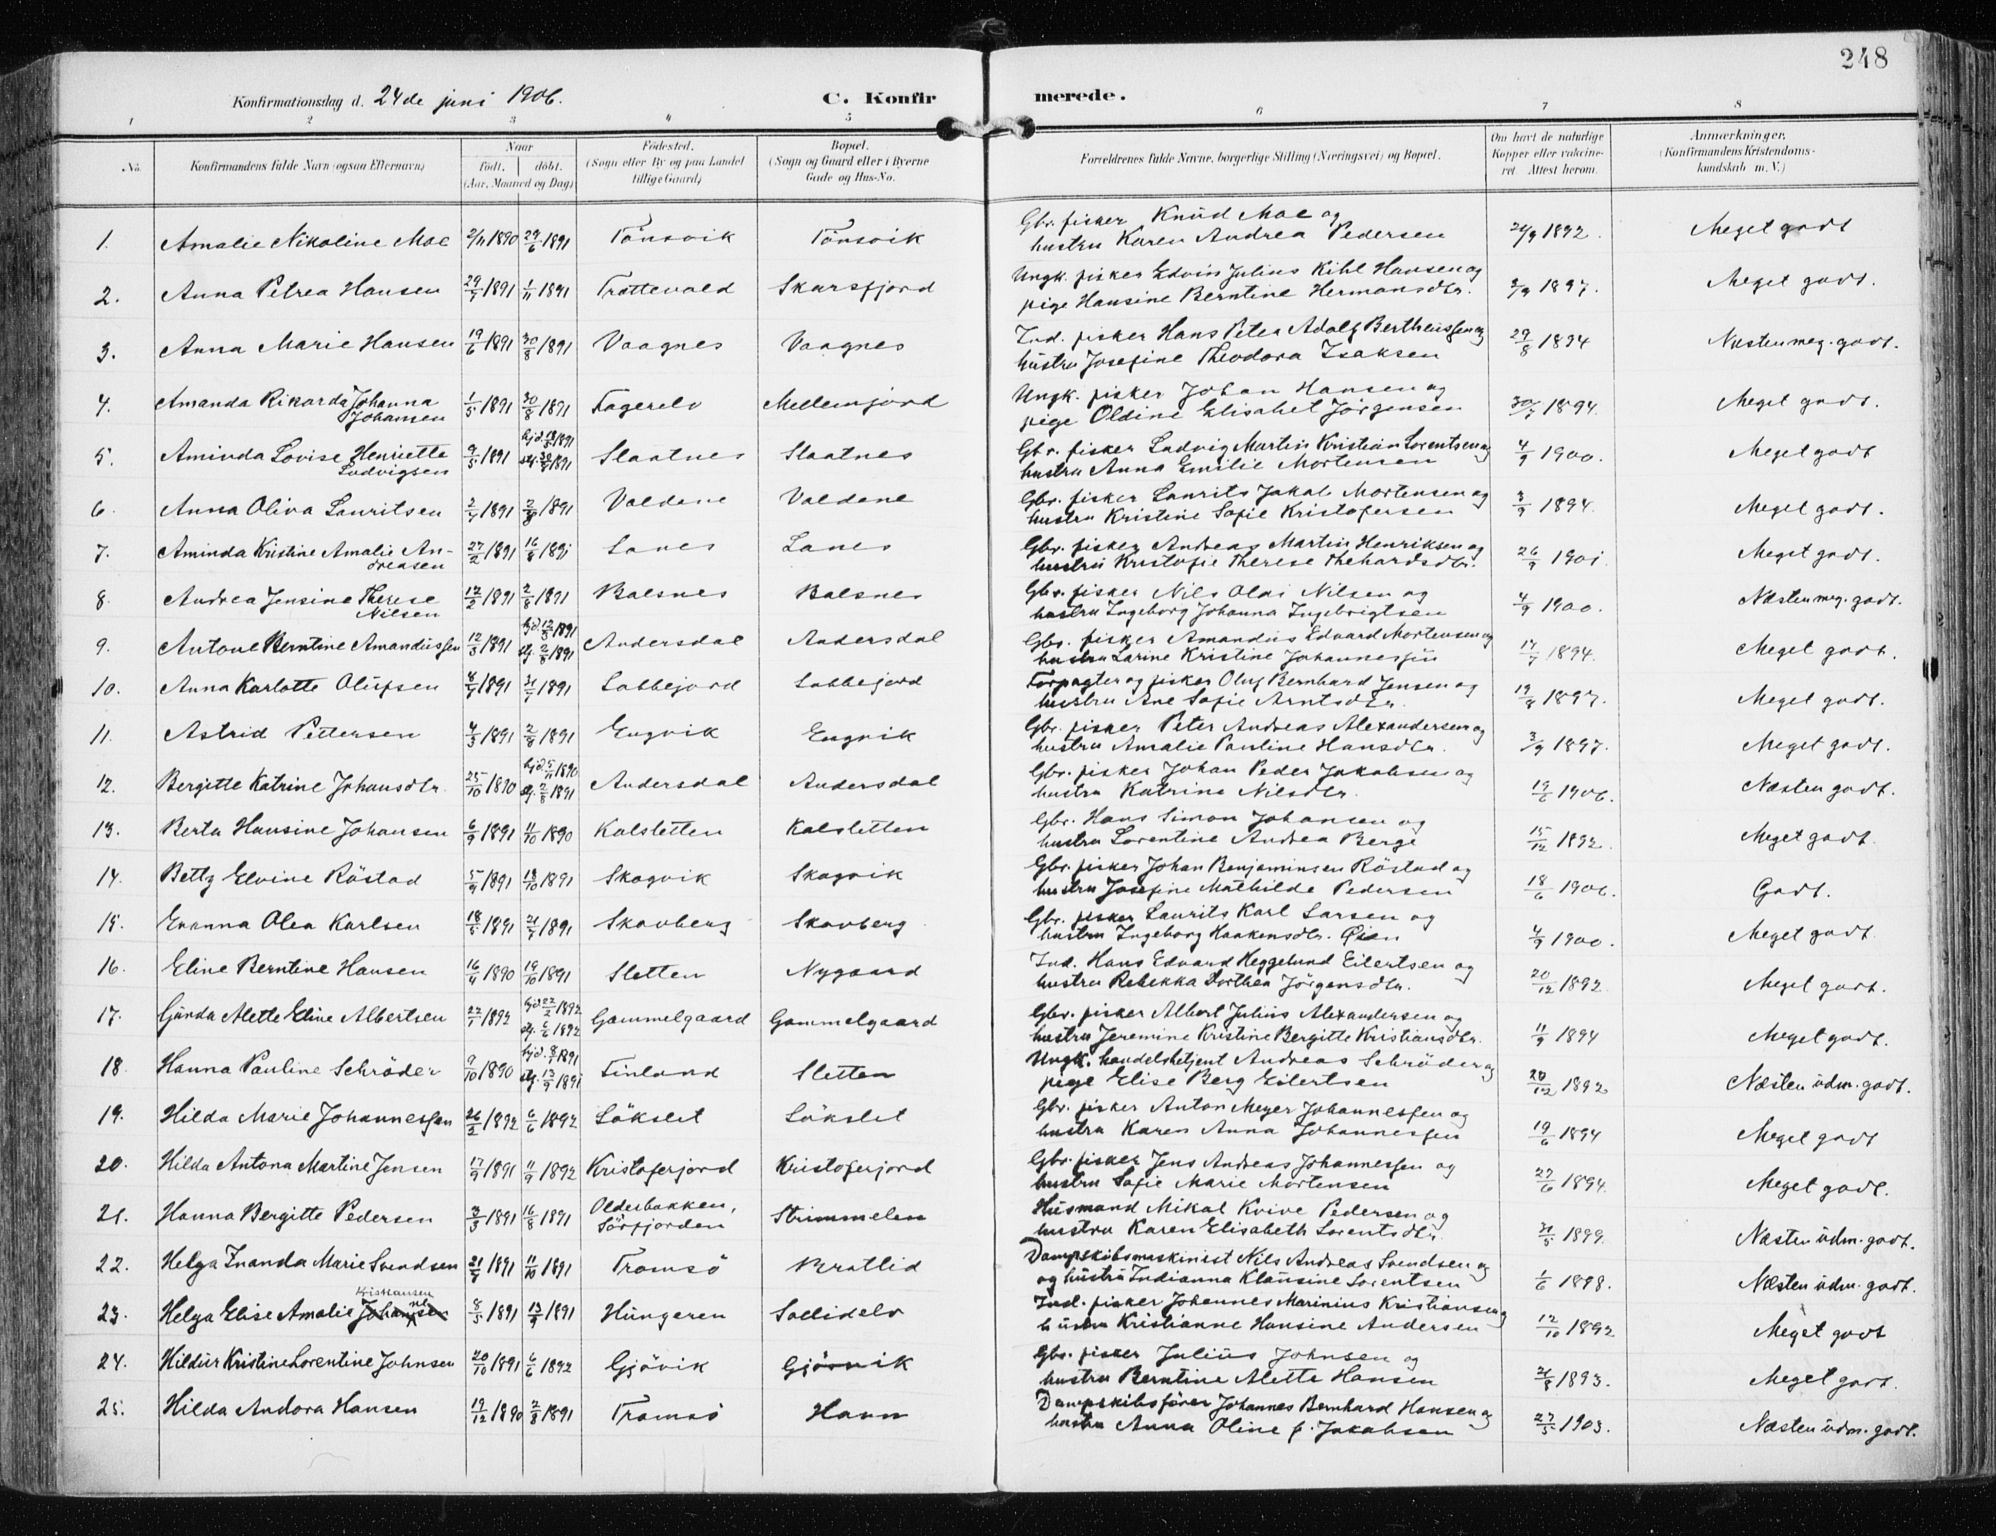 248
Konfirmationsdag d. 24de juni 1906. C. Konfirmerede.
1 2 3 4 5 6 7 8
No. Konfirmandens fulde Navn (ogsaa Efternavn) Naar Födt. döbt. (Aar, Maaned og Dag) Födested. (Sogn eller By og paa Landet tillige Gaard) Bopæl. (Sogn og Gaard eller i Byerne Gade og Hus-No. Forældrenes fulde Navne, borgerlige Stilling (Næringsvei) og Bopæl. Om havt de naturlige Kopper eller vakcineret. Attest herom. Anmærkninger. (Konfirmandens Kristendomskundskab m. V.)
1. Amalie Nikoline Moe 2/11 1890 29/6 1891 Tönsvik Tönsvik Gbr. fisker Knud Moe og
hustru Karen Andrea Pedersen 1892. Meget godt
2. Anna Petrea Hansen 29/7 1891 1/11 1891 Trættevold Skarsfjord Ungk. fisker Edvin Julius Kihl Hansen og
pige Hansine Berntine Hermansdtr. 1897. Meget godt.
3. Anna Marie Hansen 19/6 1891 30/8 1891 Vaagnes Vaagnes Ind. fisker Hans Peter Adolf Bertheussen og
hustru Josefine Theodora Isaksen 29/8 1894 Næsten meg. godt.
4. Amanda Rikarda Johanna
Johansen 1/5 1891 30/8 1891 Fagerelv Mellemjord Ungk. fisker Johan Hansen og
pige Oldine Elisabet Jörgensen 30/7 1894. Meget godt.
5. Aminda Lovise Henriette
Ludvigsen 9/5 1891 Slaatnes Slaatnes Gbr. fisker Ludvig Martin Kristian Lorentsen og
hustru Anna Emilie Mortensen 4/9 1900. Meget godt
6. Anna Oliva Lauritsen 2/7 1891 2/8 1891 Valdene Valdene Gbr. fisker Laurits Jakob Mortensen og
hustru Kristine Sofie Kristofersen 3/9 1894. Meget godt.
7. Aminda Kristine Amalie Andreasen 27/2 1891 16/8 1891 Lanes Lanes Gbr. fisker Andreas Martin Henriksen og
hustru Kristofie Therese Thehardsdtr. 26/9 1901 Meget godt.
8. Andrea Jensine Therese
Nilsen 12/2 1891 2/8 1891 Balsnes Balsnes Gbr. fisker Nils Olai Nilsen og
hustru Ingeborg Johanna Ingebrigtsen 4/9 1900. Næsten meg. godt.
9. Antone Berntine Amandussen 12/3 1891 hjd. 1891 stf. 2/8 1891 Andersdal Andersdal Gbr. fisker Amandus Edvard Mortensen og
hustru Larine Kristine Johannessen 17/7 1894. Meget godt.
10. Anna Karlotte Olufsen 1891 1891 Labbejord Labbejord Forpagter og fisker Oluf Bernhard Jensen og
hustru Ane Sofie Arntsdtr. 1897. Meget godt.
11. Astrid Pettersen 4/3 1891 2/8 1891 Engvik Engvik Gbr. fisker Peter Andreas Alexandersen og
hustru Amalie Pauline Hansdtr. 3/9 1897. Meget godt.
12. Bergitte Katrine Johansdtr. 25/10 1890 hjd. 5/11 1890 stf. 2/8 1891 Andersdal Andersdal Gbr. fisker Johan Peder Jakobsen og
hustru Katrina Nilsdtr. 19/6 1906. Næsten godt.
13. Berta Hansine Johansen 6/9 1891 11/10 1890 Kalsletten Kalsletten Gbr. Hans Simon Johansen og
hustru Lorentine Andrea Berge 15/12 1892. Meget godt
14. Betty Elvine Röstad 5/9 1891 18/10 1891 Skogvik Skogvik Gbr. fisker Johan Benjaminsen Röstad og
hustru Josefine Mathilde Pedersen 18/6 1906. Godt.
15. Evanna Olea Karlsen 18/5 1891 1891 Skavberg Skavberg Gbr. fisker Laurits Karl Larsen og
hustru Ingeborg Haakensdtr. Öien 4/9 1900. Meget godt.
16. Eline Berntine Hansen 16/4 1890 19/10 1891 Sletten Nygaard Ind. Hans Edvard Heggelund Eilertsen og
hustru Rebekka Dorthea Jörgensdtr. 20/12 1892 Meget godt.
17. Gunda Alette Eline Albertsen 22/1 1892 hjd. 22/2 1892 stf. 6/6 1892 Gammelgaard Gammelgaard Gbr. fisker Albert Julius Alexandersen og
hustru Jeremine Kristine Bergitte Kristiansdtr. 11/9 1894 Meget godt.
18. Hanna Pauline Schröder 9/10 1890 hjd. 1891 stf. 13/9 1891 Finland Sletten Ungk. handelsbetjent Andreas Schröder og
pige Elise Berg Eilertsen 20/12 1892 Næsten udm. godt.
19. Hilda Marie Johannessen 26/2 1892 6/6 1892 Lökslet Lökslet Gbr. fisker Anton Meyer Johannessen og
hustru Karen Anna Johannessen 19/6 1894 Meget godt
20. Hilda Antona Martine Jensen 17/9 1891 11/9 1892 Kristoferjord Kristoferjord Gbr. fisker Jens Andreas Johannessen og
hustru Sofie Marie Mortensen 27/6 1894. Meget godt.
21. Hanna Bergitte Pedersen 3/3 1891 16/8 1891 Olderbakken,
Sörfjorden Strimmelen Husmand Mikal Kvive Pedersen og
hustru Karen Elisabeth Lorentsdtr. 1899. Næsten udm. godt.
22. Helga Inanda Marie Svendsen 21/9 1891 11/10 1891 Tromsö Bratlid Dampskibsmaskinist Nils Andreas Svendsen og
og hustru Indianna Klausine Lorentsen 1/6 1898. Næsten udm. godt.
23. Helga Elise Amalie Johansen Kristiansen 8/5 1891 13/9 1891 Hungeren Sollidelv Ind. fisker Johannes Marinius Kristiansen og
hustru Kristianne Hansine Andersen 12/10 1892 Meget godt
24. Hildur Kristine Lorentine Johnsen 20/10 1891 6/6 1892 Gjövik Gjövik Gbr. fisker Julius Johnsen og
hustru Berntine Alette Hansen 1893. Meget godt.
25. Hilda Andora Hansen 19/12 1890 2/8 1891 Tromsö Havn Dampskibsförer Johannes Bernhard Hansen og
hustru Anna Oline f. Jakobsen 27/5 1903. Næsten udm. godt.